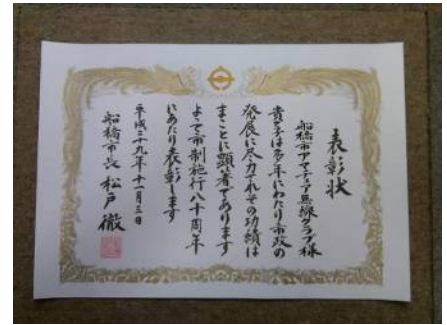 表彰状
船橋市アマチュア無線クラブ様
貴方は多年にわたり市政の
発展に尽力されその功績は
まことに顕著であります
よって市制施行八十周年
にあたり表彰します
平成二十九年十一月三日
船橋市長 松戸 徹